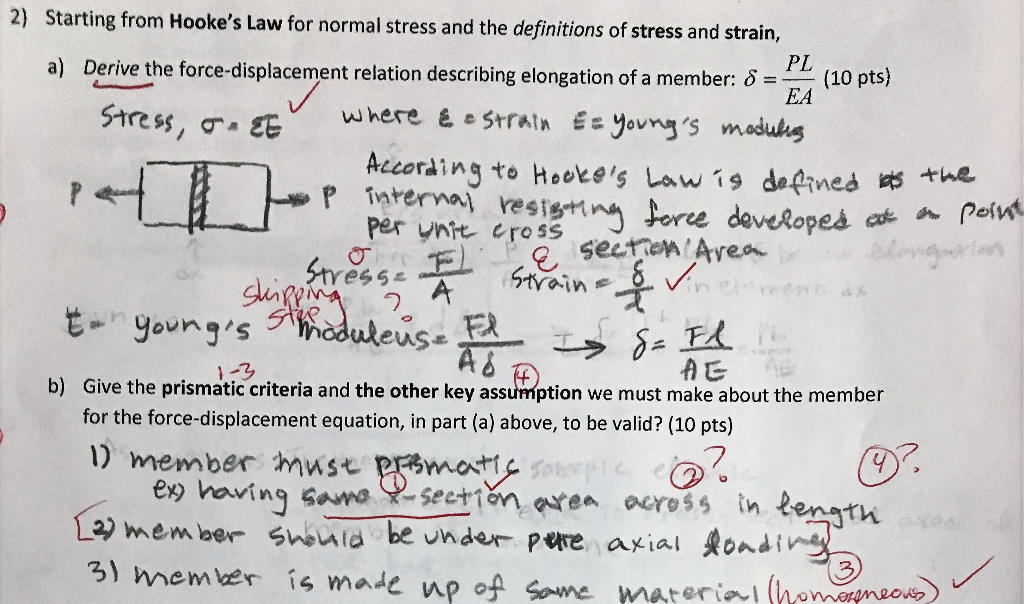 2) Starting from Hooke's Law for normal stress and the definitions of stress and strain,
a) Derive the force-displacement relation describing elongation of a member: δ = PL/EA (10 pts)
Stress, σ = ƐE ✓ where Ɛ = strain E = young's modulus
According to Hooke's Law is defined as the
P P internal resisting force developed at a point
per unit cross section/Area
σ Stress = F/A Ɛ Strain = δ/l ✓
skipping step ?
E = young's moduleus = Fl/Aδ → δ = Fl/AE
1-3 4
b) Give the prismatic criteria and the other key assumption we must make about the member
for the force-displacement equation, in part (a) above, to be valid? (10 pts)
1) member must prismatic
② ? ④ ?
ex) having same x-section area across in length
① ✓
[2) member should be under pure axial loading]
③
3) member is made up of same material (homogeneous) ✓